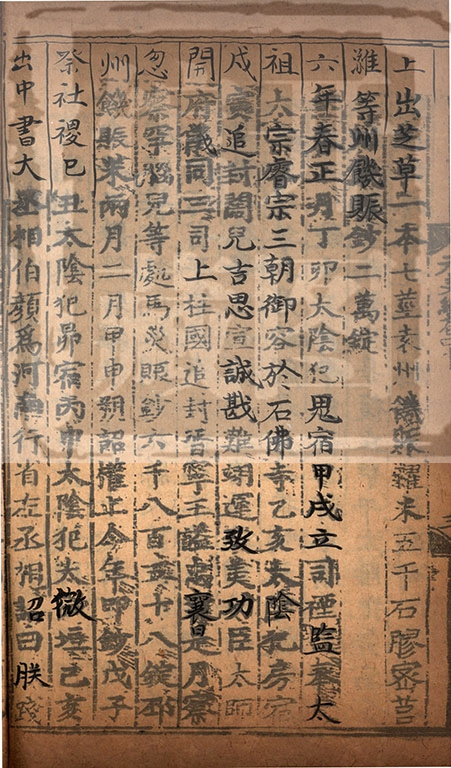 上出芝草二本七莖袁州饑賑糶米五千石膠密莒
濰等州饑賑鈔二萬錠
六年春正月丁卯太陰犯鬼宿甲戌立司禋監奉太
祖太宗睿宗三朝御容於石佛寺乙亥太陰犯房宿
戊寅追封闊兒吉思宣誠戡難翊運致美功臣太師
開府儀同三司上柱國追封晉寧王諡忠襄是月察
忽察罕腦兒等處馬災賑鈔六千八百五十八錠邳
州饑賑米兩月二月甲申朔詔權止今年印鈔戊子
祭社稷己丑太陰犯昴宿丙申太陰犯太微垣己亥
出中書大丞相伯顏爲河南行省左丞相詔曰朕踐